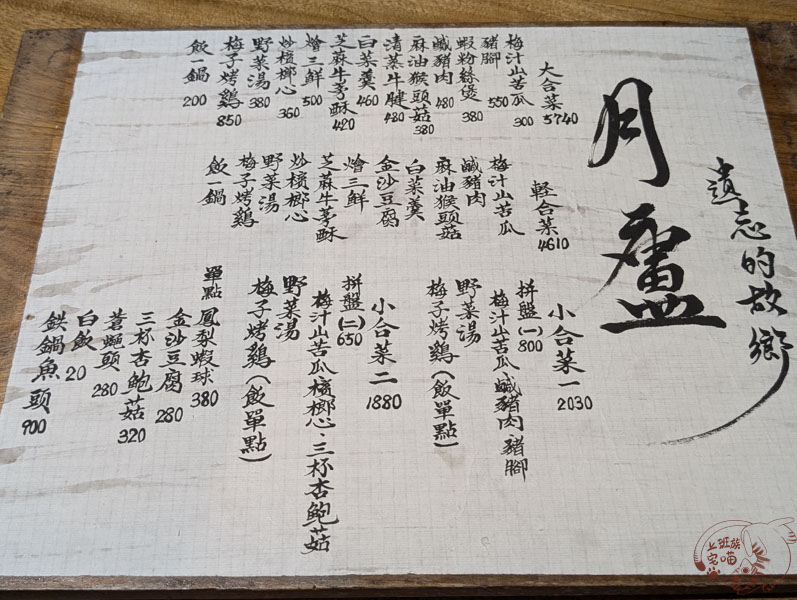 遺忘的故鄉
月廬
大合菜 5740
梅汁山苦瓜 300
豬腳 550
蝦粉絲煲 380
鹹豬肉 480
麻油猴頭菇 380
清蒸牛腱 480
白菜羹 460
芝蔴牛蒡酥 420
燴三鮮 500
炒檳榔心 360
野菜湯 380
梅子烤鷄 850
飯一鍋 200
輕合菜 4610
梅汁山苦瓜
鹹豬肉
麻油猴頭菇
白菜羹
金沙豆腐
燴三鮮
芝蔴牛蒡酥
炒檳榔心
野菜湯
梅子烤鷄
飯一鍋
小合菜一 2030
拼盤(一) 800
梅汁山苦瓜 鹹豬肉 豬腳
野菜湯
梅子烤鷄(飯單點)
小合菜二 1880
拼盤(二) 650
梅汁山苦瓜 檳榔心、三杯杏鮑菇
野菜湯
梅子烤鷄(飯單點)
單點
鳳梨蝦球 380
金沙豆腐 280
三杯杏鮑菇 320
蒼蠅頭 280
白飯 20
鉄鍋魚頭 900
上班族
宅喵